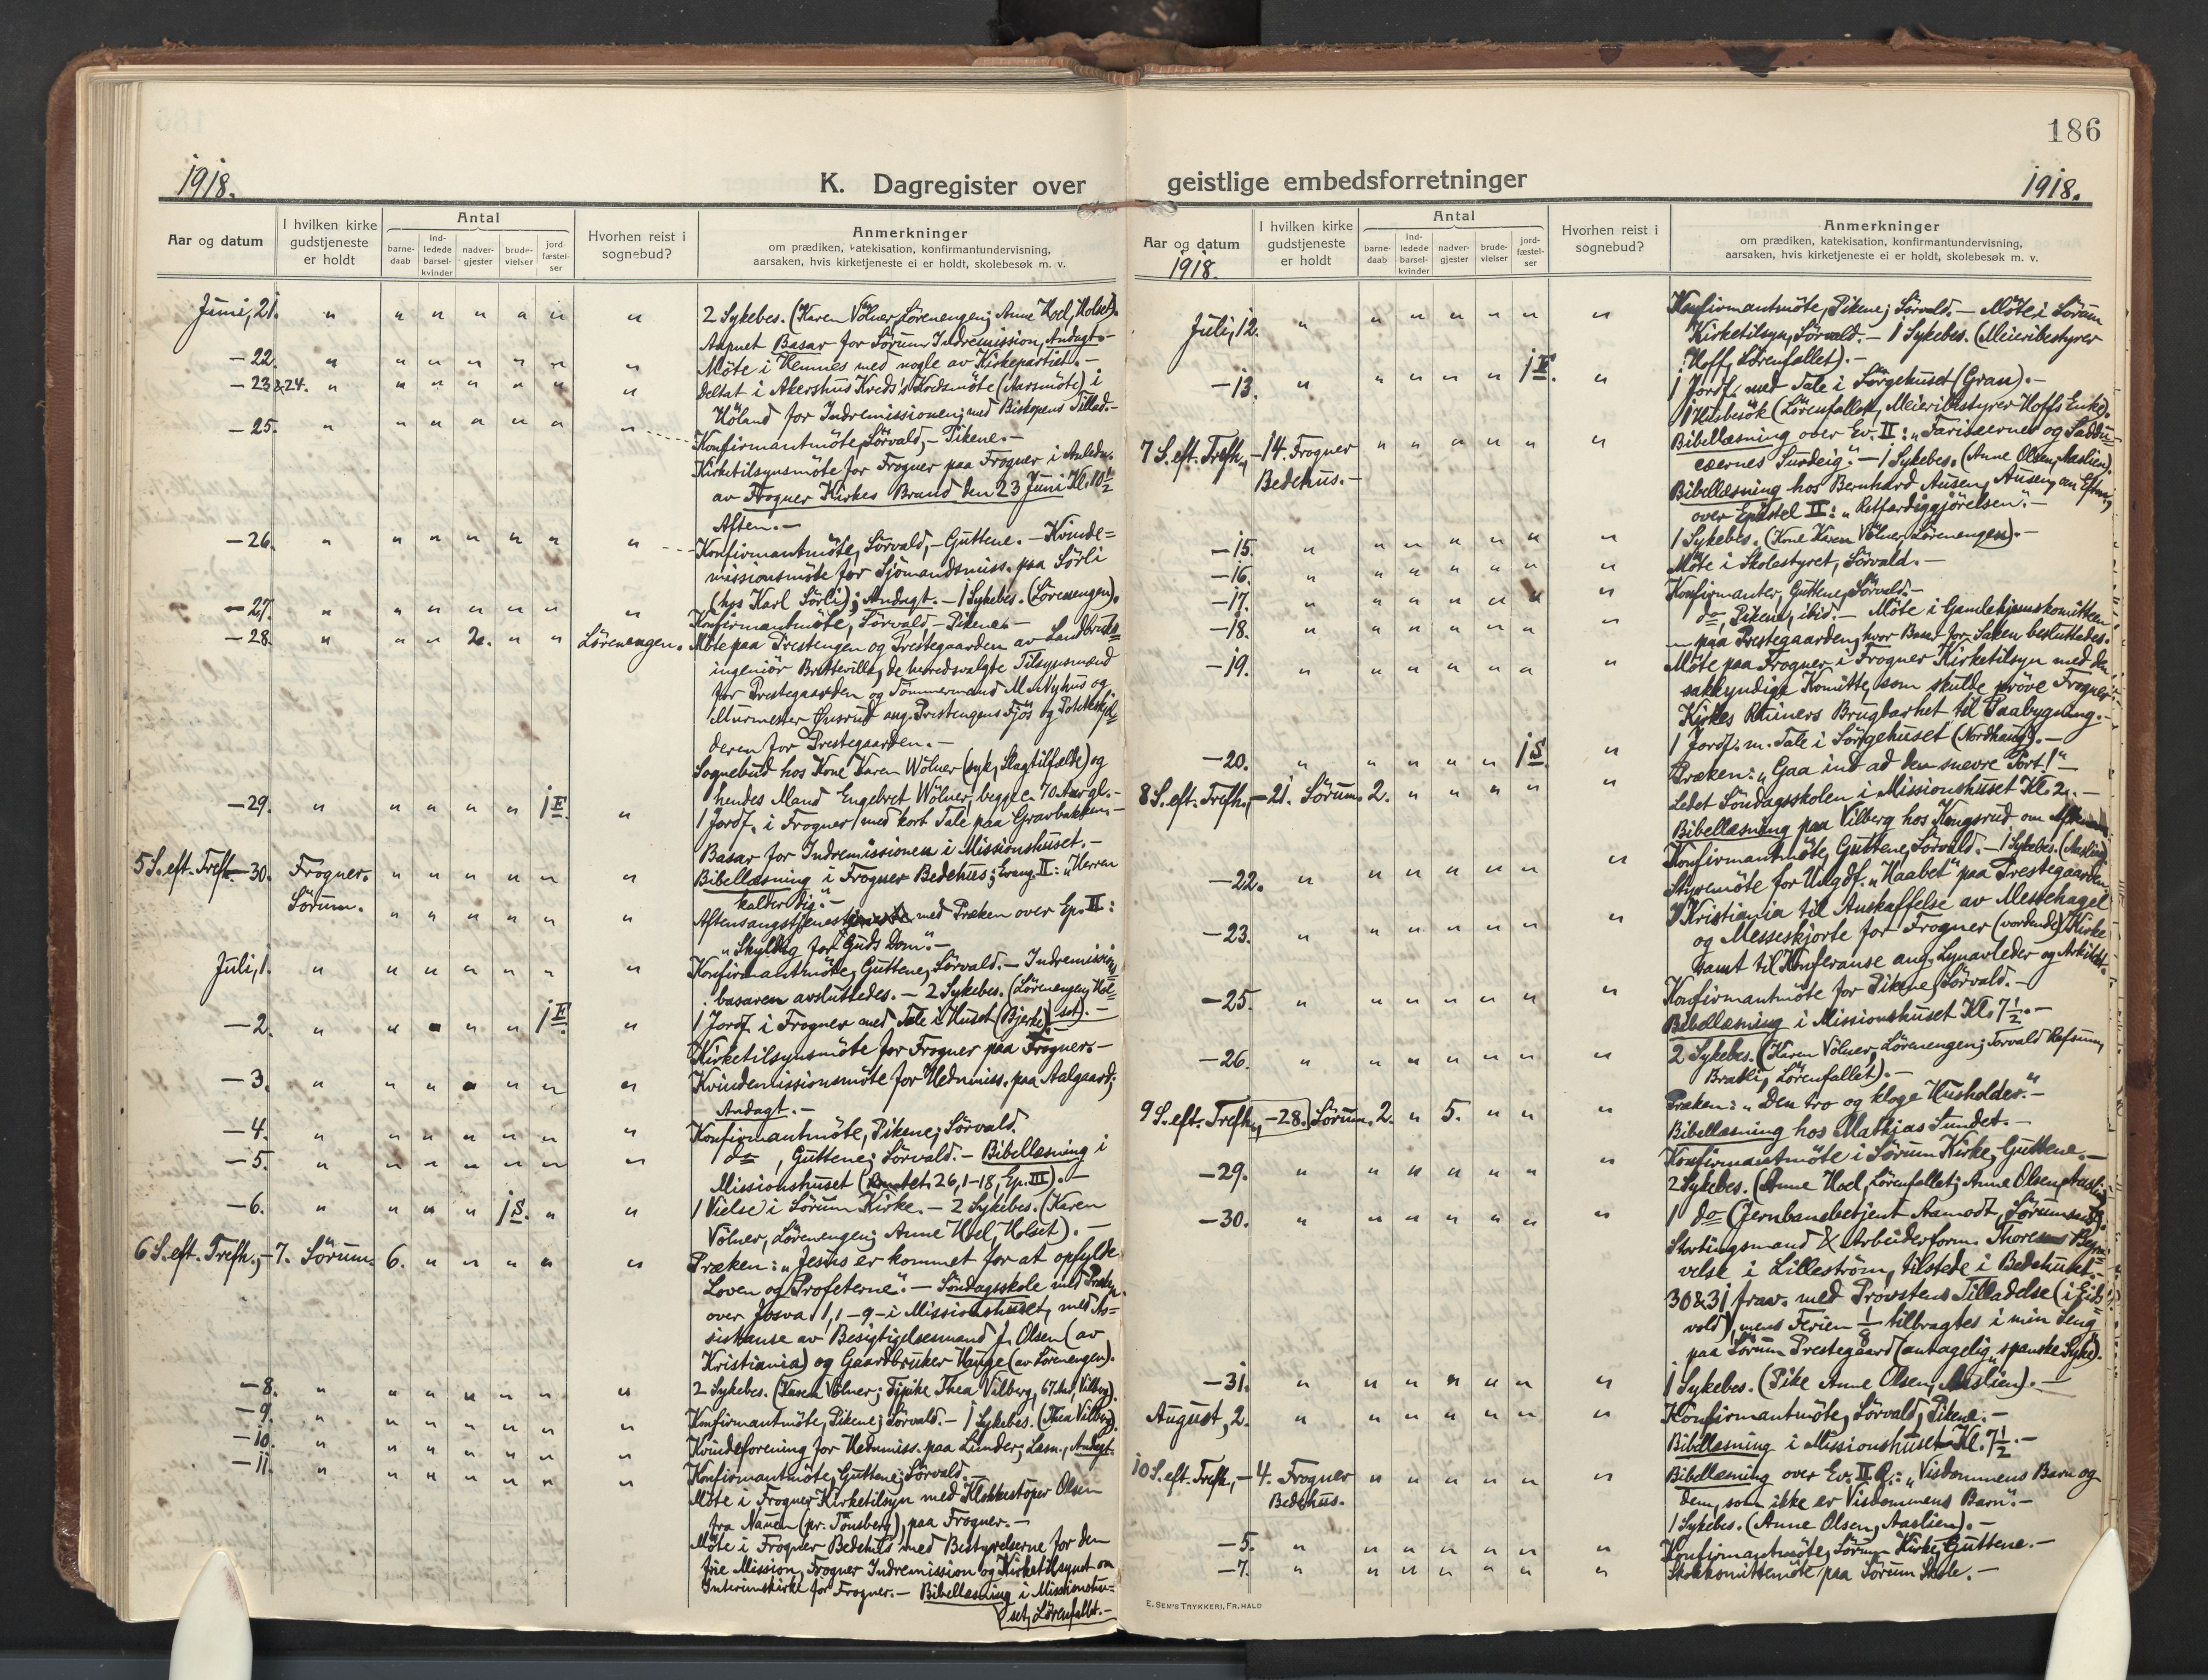 186
1918.
K. Dagregister over
Aar og datum
I hvilken kirke
gudstjeneste
er holdt
Antal
barne-
daab
ind-
ledede
barsel-
kvinder
nadver-
gjester
brude-
vielser
jord-
fæstel-
ser
Hvorhen reist i
sognebud?
Anmerkninger
om prædiken, katekisation, konfirmantundervisning,
aarsaken, hvis kirketjeneste ei er holdt, skolebesøk m. v.
Juni, 21. " " " " " " " 2 Sykebes. (Karen Völner, Lörenengen; Anne Hoel, Holset).
Aapnet Basar for Sörum Indremission, Andagt.-
- 22. " " " " " " " Möte i Hemnes med nogle av Kirkepartiet.-
- 23 & 24. " " " " " " " Deltat i Akershus Kreds's Kredsmöte (Aarsmöte) i
Höland for Indremissionen; med Biskopens Tillad.-
- 25. " " " " " " " Konfirmantmöte, Sörvald, - Pikene.-
Kirketilsynsmöte for Frogner paa Frogner i Anledn.
av Frogner Kirkes Brand den 23 Juni Kl. 10 1/2
Aften.-
- 26. " " " " " " " Konfirmantmöte, Sörvald, - Guttene. - Kvinde=
missionsmöte for Sjömandsmiss. paa Sörli
(hos Karl Sörli); Andagt. - 1 Sykebes. (Lörenengen).
- 27. " " " " " " " Konfirmantmöte, Sörvald, - Pikene.-
- 28. " " " 2. " " Lörenengen. Möte paa Prestengen og Prestegaarden av Landbruks=
ingeniör Bretteville, de herredsvalgte Tilsynsmænd
for Prestegaarden og Tömmermand M. Nyhus og
Murmester Gusrud ang. Prestengens Fjös og Potetkjel=
deren for Prestegaarden.-
Sognebud hos Kone Karen Wölner (syk, Slagtilfælde) og
hendes Mand Engebret Wölner, begge c. 70 Aar gl.-
- 29. " " " " " 1 F. " 1 Jordf. i Frogner med kort Tale paa Gravbakken.-
Basar for Indremissionen i Missionshuset.-
5 S. eft. Trefh. - 30. Frogner. " " " " " " Bibellæsning i Frogner Bedehus; Evang. II: "Herren
kalder dig."-
Sörum. " " " " " " Aftensangstjeneste med Præken over Ep. II:
"Skyldig for Guds Dom."-
Juli, 1. " " " " " " " Konfirmantmöte, Guttene, Sörvald. - Indremissions=
basaren avsluttedes. - 2 Sykebes. (Lörenengen; Hol=
set).-
- 2. " " " " " 1 F. " 1 Jordf. i Frogner med Tale i Huset (Bjerke).-
Kirketilsynsmöte for Frogner paa Frogner.-
- 3. " " " " " " " Kvindemissionsmöte for Hedmiss. paa Aalgaard;
Andagt.-
- 4. " " " " " " " Konfirmantmöte, Pikene, Sörvald.
- 5. " " " " " " " 1 do, Guttene; Sörvald. - Bibellæsning i
Missionshuset (26, 1-18, Ep. III).-
- 6. " " " " 1 S. " " 1 Vielse i Sörum Kirke. - 2 Sykebes. (Karen
Völner, Lörenengen; Anne Hoel, Holset).-
6 S. eft. Trefh., - 7. Sörum. 6. " " " " " Præken: "Jesus er kommet for at opfylde
Loven og Profeterne". - Söndagsskole med Præk.
over Josva 1, 1-9 - i Missionshuset, med As=
sistanse av Besigtigelsesmand J. Olsen (av
Kristiania) og Gaardbruker Hauge (av Lörenengen).
- 8. " " " " " " " 2 Sykebes. (Karen Völner; Pike Thea Vilberg, 67 Aar, Vilberg).
- 9. " " " " " " " Konfirmantmöte, Pikene; Sörvald. - 1 Sykebes. (Thea Vilberg).
- 10. " " " " " " " Kvindeforening for Hedmiss. paa Lunder; Læsn., Andagt.
- 11. " " " " " " " Konfirmantmöte, Guttene; Sörvald.-
Möte i Frogner Kirketilsyn med Klokkestöper Olsen
fra Nauen (pr. Tönsberg), paa Frogner.-
Möte i Frogner Bedehus med Bestyrelserne for den
frie Mission, Frogner Indremission og Kirketilsynet om
Interimskirke for Frogner. - Bibellæsning i Missionshu=
set, Lörenfallet.-
geistlige embedsforretninger
1918.
Aar og datum
1918.
I hvilken kirke
gudstjeneste
er holdt
Antal
barne-
daab
ind-
ledede
barsel-
kvinder
nadver-
gjester
brude-
vielser
jord-
fæstel-
ser
Hvorhen reist i
sognebud?
Anmerkninger
om prædiken, katekisation, konfirmantundervisning,
aarsaken, hvis kirketjeneste ei er holdt, skolebesøk m. v.
Juli, 12. " " " " " " " Konfirmantmöte, Pikene; Sörvald. - Möte i Sörum
Kirketilsyn, Sörvald. - 1 Sykebes. (Meieribestyrer
Hoff, Lörenfallet).-
- 13. " " " " " 1 F. " 1 Jordf. med Tale i Sörgehuset (Gran).-
1 Husbesök (Lörenfallet, Meieribestyrer Hoffs Enke).
7 S. eft. Trefh., - 14. Frogner " " " " " " Bibellæsning over Ev. II: "Farisæernes og Saddu=
Bedehus.- cæernes Surdeig." - 1 Sykebes. (Anne Olsen, Aaslien).
Bibellæsning hos Bernhard Ausen, Ausen, om Eftm.,
over Epistel II: "Retfærdiggjörelsen".-
- 15. " " " " " " " 1 Sykebes. (Kone Karen Völner, Lörenengen).-
- 16. " " " " " " " Möte i Skolestyret, Sörvald.-
- 17. " " " " " " " Konfirmanter, Guttene, Sörvald.-
- 18. " " " " " " " do, Pikene, ibid. - Möte i Gamlehjemskomitteen
paa Prestegaarden, hvor Basar for Saken besluttedes.
- 19. " " " " " " " Möte paa Frogner i Frogner Kirketilsyn med den
sakkyndige Komitte, som skulde pröve Frogner
Kirkes Ruiners Brugbarhet til Paabygning.-
- 20. " " " " " 1 S. " 1 Jordf. m. Tale i Sörgehuset (Nordhaug).-
8 S. eft. Trefh., - 21. Sörum. 2. " " " " " Præken: "Gaa ind ad den snevre Port!"-
Ledet Söndagsskolen i Missionshuset Kl. 2.-
Bibellæsning paa Vilberg hos Kongsrud om Aftenen.
- 22. " " " " " " " Konfirmantmöte, Guttene, Sörvald. - 1 Sykebes. (Aaslien).
Styremöte for Ungdf. "Haabet" paa Prestegaarden.
- 23. " " " " " " " I Kristiania til Anskaffelse av Messehagel
og Messeskjorte for Frogner (vordende) Kirke
samt til Konferanse ang. Lynavleder og Arkitekt.
- 25. " " " " " " " Konfirmantmöte for Pikene, Sörvald.-
Bibellæsning i Missionshuset Kl. 7 1/2.-
- 26. " " " " " " " 2 Sykebes. (Karen Völner, Lörenengen; Torvald Refsum,
Bratli, Lörenfallet).-
9 S. eft. Trefh., - 28. Sörum. 2. " 5. " " " Præken: "Den tro og kloge Husholder."-
Bibellæsning hos Mathias Sundet.-
- 29. " " " " " " " Konfirmantmöte i Sörum Kirke, Guttene.-
2 Sykebes. (Anne Hoel, Lörenfallet; Anne Olsen, Aaslien).
- 30. " " " " " " " 1 do (Jernbanebetjent Aamodt, Sörumsand).
Stortingsmand & Arbeiderform. Thoresens Begra=
velse i Lilleström, tilstede i Bedehuset.
30 & 31 frav. med Provstens Tilladelse (i Eids=
vold), mens Ferien 1/8 tilbragtes i min Seng
paa Sörum Prestegaard (antagelig "spanske Syke).
- 31. " " " " " " " 1 Sykebes. (Pike Anne Olsen, Aaslien).-
August, 2. " " " " " " " Konfirmantmöte, Sörvald, Pikene.-
Bibellæsning i Missionshuset Kl. 7 1/2.-
10 S. eft. Trefh., - 4. Frogner " " " " " " Bibellæsning over Ev. II R.: "Visdommens Barn og
Bedehus. dem, som ikke er Visdommens Barn".-
1 Sykebes. (Anne Olsen, Aaslien).-
- 5. " " " " " " " Konfirmantmöte, Sörum Kirke, Guttene.-
- 7. " " " " " " " Skolekomitemöte paa Sörum Skole.-
E. SEM'S TRYKKERI, FR.HALD